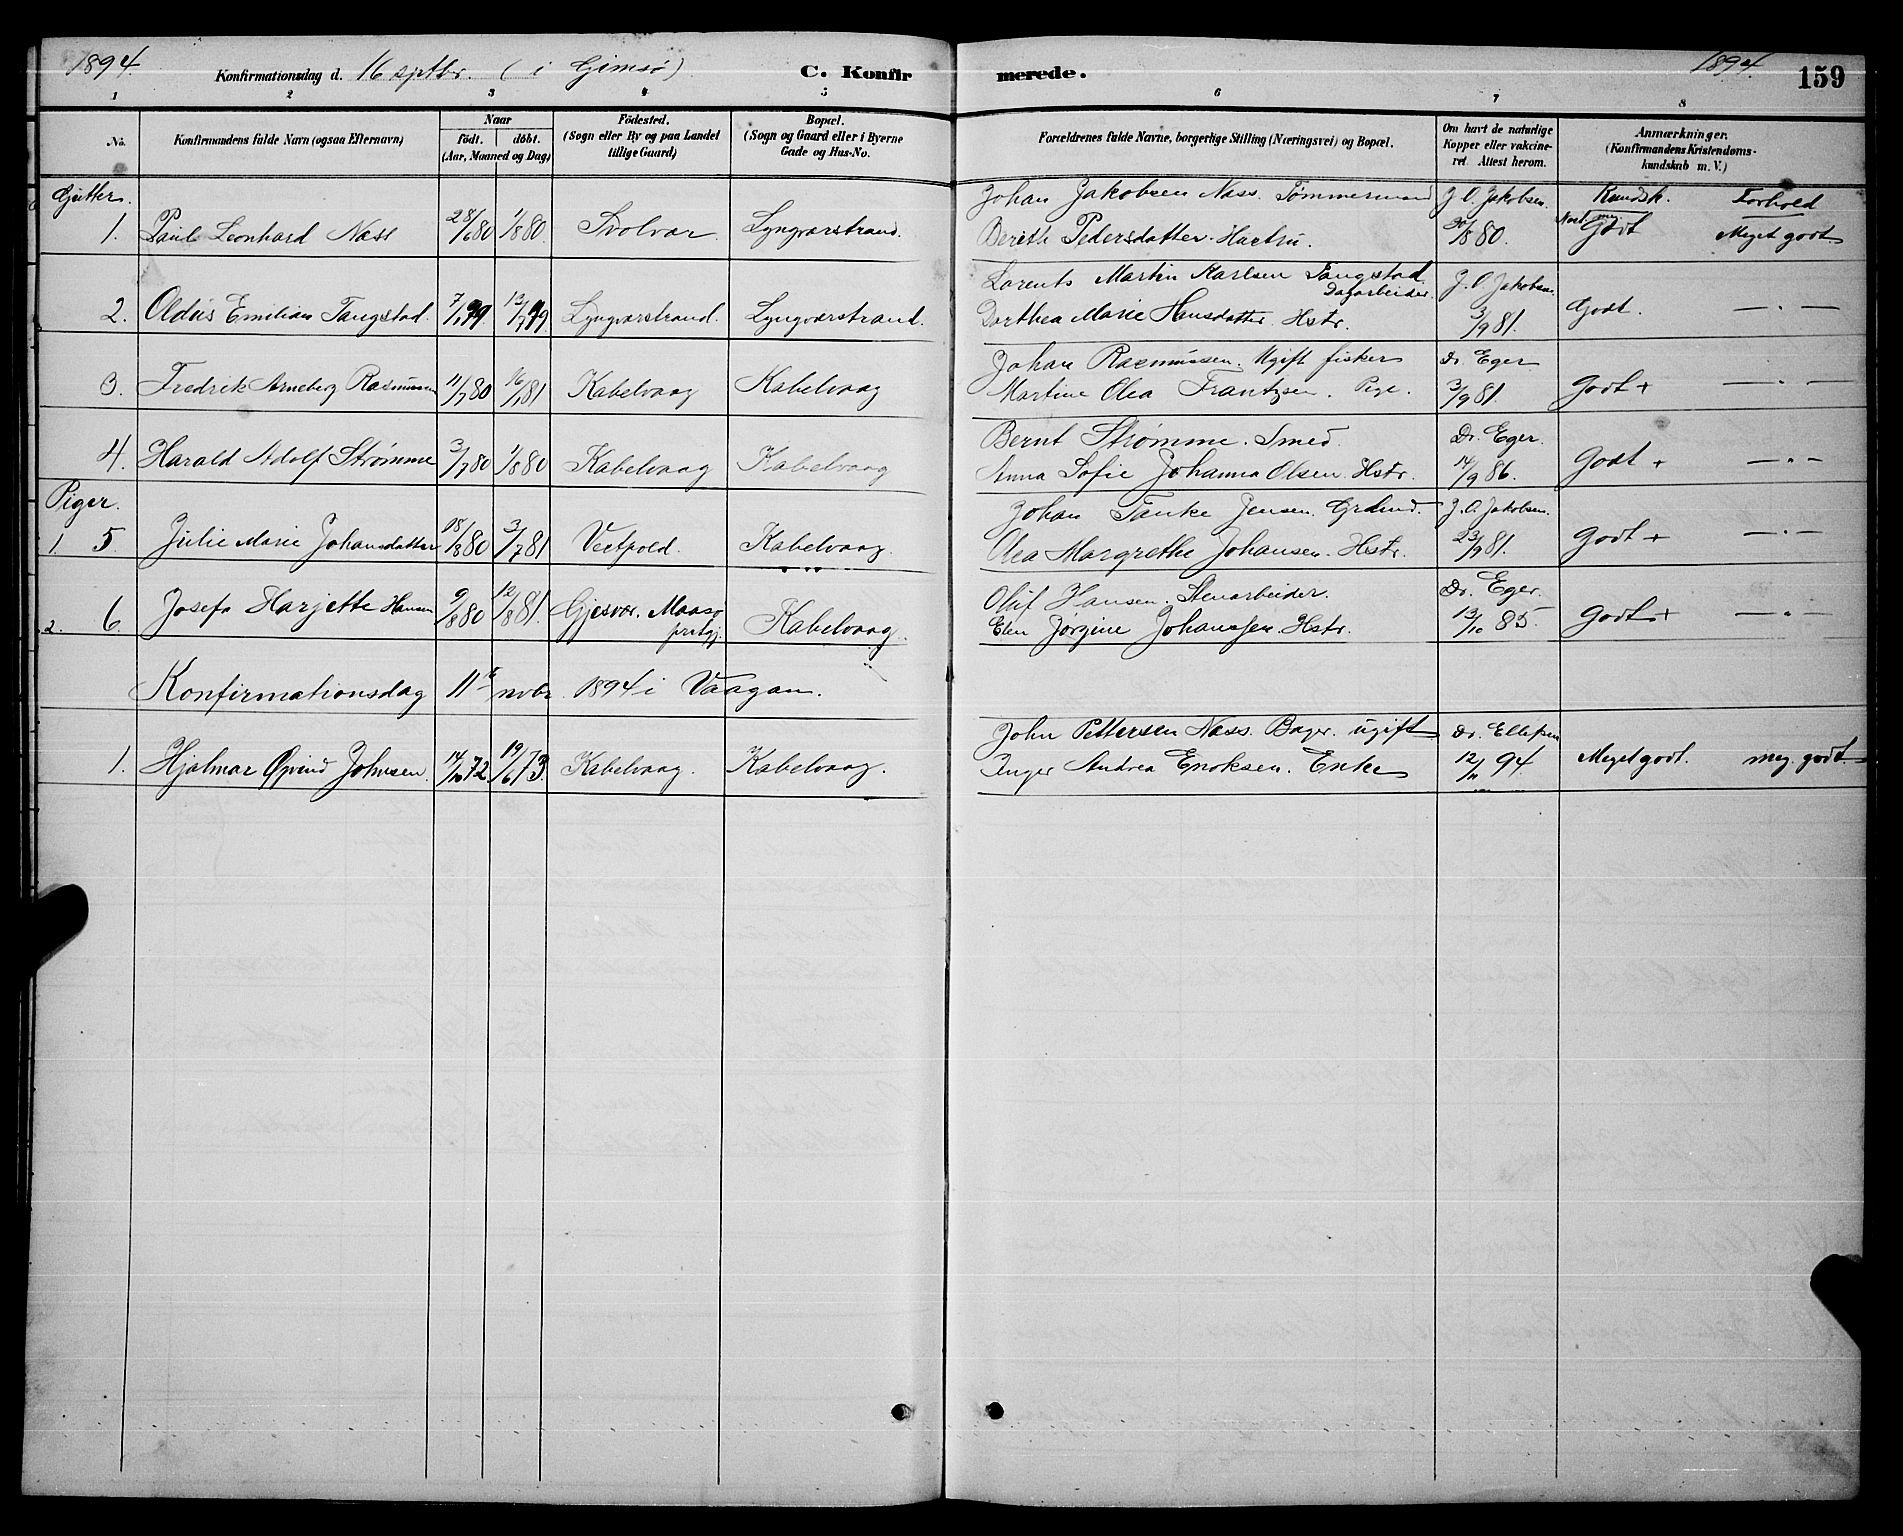 1894.
Konfirmationsdag d. 16 sptbr. (i Gimsø)
C. Konfir
merede.
1894.
159
1 2 3 4 5 6 7 8
No.
Konfirmandens fulde Navn (ogsaa Efternavn)
Naar
födt. döbt.
(Aar, Maaned og Dag)
Födested.
(Sogn eller By og paa Landet
tillige Gaard)
Bopæl.
(Sogn og Gaard eller i Byerne
Gade og Hus-No.
Forældrenes fulde Navne, borgerlige Stilling (Næringsvei) og Bopæl.
Om havt de naturlige
Kopper eller vakcine-
ret. Attest herom.
Anmærkninger.
(Konfirmandens Kristendoms-
kundskab m. V.)
Gutter.
Johan Jakobsen Næss. Tømmermand J. O. Jakobsen. Kundsk. Forhold
1. Paul Leonhard Næss 28/6 80 1/8 80. Svolvær. Lyngværstrand. Berith Pedersdatter. Hustru. 30/8 80. meg. Godt Meget godt
Lorents Martin Karlsen Tangstad J. O. Jakobsen.
Dagarbeider.
2. Oldus Emilian Tangstad. 7/1 79. 13/7 79 Lyngværstrand. Lyngværstrand. Dorthea Marie Hansdatter. Hstr. 3/9 81. Godt. — " —
Johan Rasmussen. Ugift fisker Dr. Eger
3. Fredrik Arneberg Rasmussen 11/7 80 16/1 81 Kabelvaag Kabelvaag Martine Olea Frantzen. Pige. 3/9 81. Godt + — " —
Bernt Strømme. Smed. Dr. Eger.
4. Harald Adolf Strømme 3/7 80 1/8 80 Kabelvaag Kabelvaag Anna Sofie Johanna Olsen. Hstr. 14/9 86. Godt + — " —
Piger.
Johan Tanke Jensen. Grdmd. J. O. Jakobsen.
1. 5. Julie Marie Johansdatter 18/8 80 3/7 81 Vestpold. Kabelvaag. Olea Margrethe Johansen. Hstr. 23/9 81. Godt + — " —
Oluf Hansen. Stenarbeider. Dr. Eger.
2. 6. Josefa Harjette Hansen 9/8 80 12/8 81. Gjesvær. Maasø
prstgj. Kabelvaag. Elen Jørgine Johansen. Hstr. 13/10 85. Godt + — " —
Konfirmationsdag 11te novbr. 1894 i Vaagan.
John Pettersen Næss. Bager. ugift Dr. Ellefsen
1. Hjalmar Øyvind Johnsen. 14/10 72. 19/6 73. Kabelvaag. Kabelvaag. Inger Andrea Enoksen. Enke 12/11 94 Meget godt. meg. godt